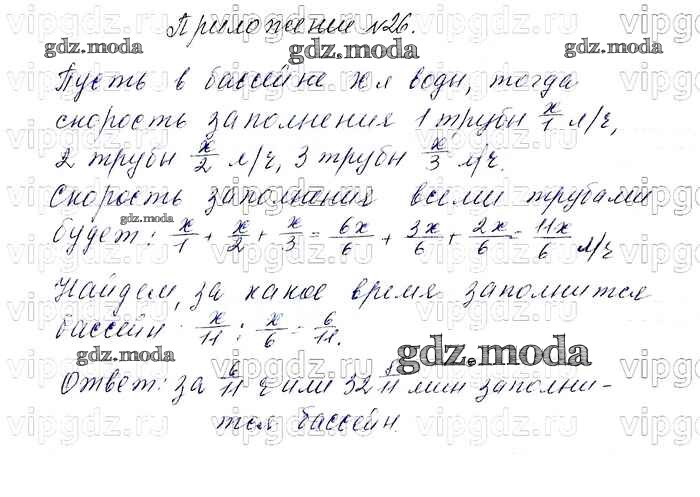 Приложение №26.
Пусть в бассейне x л воды, тогда
скорость заполнения 1 трубы x/1 л/ч,
2 трубы x/2 л/ч, 3 трубы x/3 л/ч.
Скорость заполнения всеми трубами
будет: x/1 + x/2 + x/3 = 6x/6 + 3x/6 + 2x/6 = 11x/6 л/ч
Найдем, за какое время заполнится
бассейн x/11 : x/6 = 6/11.
Ответ: за 6/11 ч или 32 8/11 мин заполни-
тся бассейн.
gdz.moda
gdz.moda
gdz.moda
gdz.moda
gdz.moda
gdz.moda
vipgdz.ru